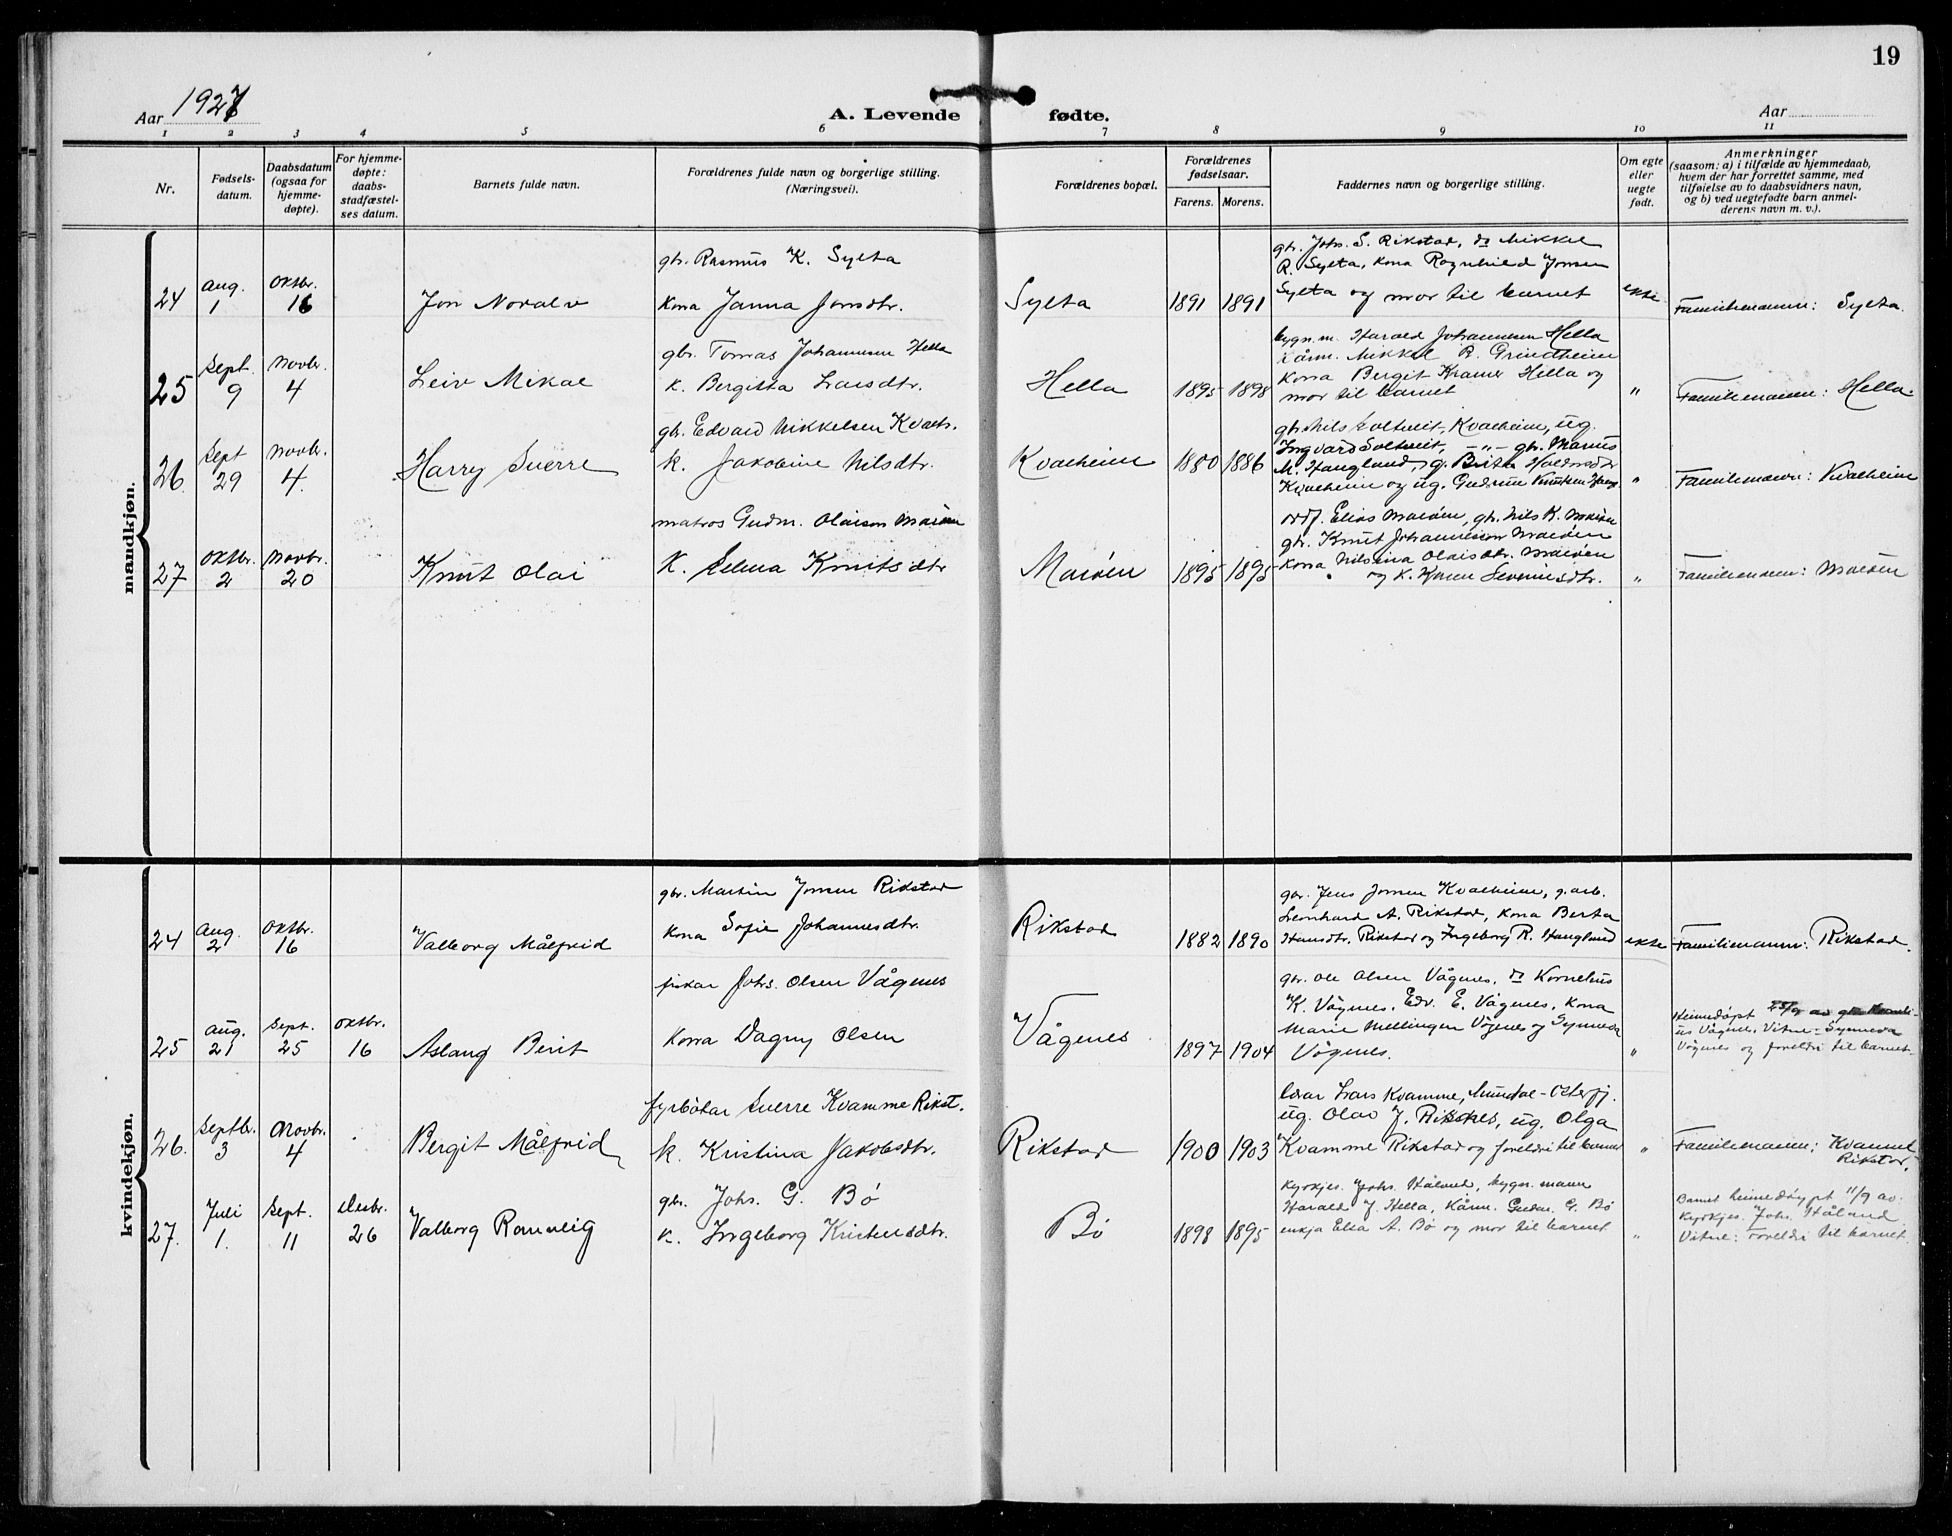 19
Aar 1927
A. Levende fødte.
Aar
1 2 3 4 5 6 7 8 9 10 11
Nr.
Fødsels-
datum.
Daabsdatum
(ogsaa for
hjemme-
døpte).
For hjemme-
døpte:
daabs-
stadfæstel-
ses datum.
Barnets fulde navn.
Forældrenes fulde navn og borgerlige stilling.
(Næringsvei).
Forældrenes bopæl.
Forældrenes
fødselsaar.
Farens. Morens.
Faddernes navn og borgerlige stilling.
Om egte
eller
uegte
født.
Anmerkninger
(saasom: a) i tilfælde av hjemmedaab,
hvem der har forrettet samme, med
tilføielse av to daabsvidners navn,
og b) ved uegtefødte barn anmel-
derens navn m. v.).
mandkjøn.
24
Aug.
1
Oktbr.
16
Jon Noralv
gbr. Rasmus K. Sylta
Kona Janna Jonsdtr.
Sylta
1891 1891
gbr. Johs. S. Rikstad, do Mikkel
R. Sylta, kona Ragnhild Jonsen
Sylta og mor til barnet
ekte
Familiemann: Sylta.
25
Sept.
9
Novbr.
4
Leiv Mikal
gbr. Tomas Johannesen Hella
k. Bergitta Larsdtr.
Hella
1895 1898
bygn.m. Harald Johannesen Hella
Kårm. Mikkel R. Grindheim
Kona Bergit Hella og
mor til barnet
"
Familiemann: Hella.
26.
Sept
29
Novbr.
4.
Harry Sverre
gbr. Edvard Mikkelsen Kvalh.
k. Jakobine Nilsdtr.
Kvalheim
1880 1886
gbr. Nils Soltveit, Kvalheim, ug.
Ingvard Soltveit, -"- gbr. Marius
M. Haugland, g. Brita
Kvalheim og ug. Gudrun Knutsen
"
Familiemann: Kvalheim
27
Oktbr.
2
Novbr.
20
Knut Olai
matros Gudm. Olaison Maløen
K. Selma Knutsdtr
Maløen
1895 1895
ordf. Elias Maløen, gbr. Nils K. Maløen
gbr. Knut Johannesson Maløen
Kona Nilsina Olaisdtr. Maløen
og k. Karen Severinsdtr.
"
Familiemann: Maløen
kvindekjøn.
24
Aug.
2
Oktbr.
16
Valborg Målfrid
gbr. Martin Jonsen Rikstad
Kona Sofie Johannesdtr.
Rikstad
1882 1890
gbr. Jens Jonsen Kvalheim, g.arb.
Leonhard A. Rikstad, kona Berta
Hansdtr. Rikstad og Ingeborg R. Haugland
ekte
Familiemann: Rikstad.
25
Aug.
21
Sept.
25
Oktbr.
16
Aslaug Berit
fiskar Johs. Olsen Vågenes
Kona Dagny Olsen
Vågenes
1897 1904
gbr. Ole Olsen Vågenes, do Kornelius
K. Vågenes, Edv. E. Vågenes, kona
Marie Mellingen Vågenes og Synneva
Vågenes.
"
Heimedøpt 25/9 av gbr. Korneli-
us Vågnes. Vitne: Synneva
Vågnes og foreldri til barnet
26.
Septbr.
3
Novbr.
4
Bergit Målfrid
fyrbøtar Sverre Kvamme Rikst.
k. Kristina Jakobsdtr.
Rikstad
1900 1903
lærar Lars Kvamme, Osterfj.
ug. Olav J. Rikstad, ug. Olga
Kvamme Rikstad og foreldri til barnet
"
Familiemann: Kvamme
Rikstad.
27.
Juli
1.
Sept.
11
Desbr.
26
Valborg Ramnlig
gbr. Johs. G. Bø
k. Ingeborg Kristensdtr.
Bø
1898 1895
Kyrkjes. Johs. Håland, bygn.mann
Harald J. Hella, Kårm. Gudm. G. Bø
enkja Elsa A. Bø og mor til barnet
"
Barnet heimedøypt 11/9 av
Kyrkjes. Johs. Håland
Vitne: Foreldri til barnet